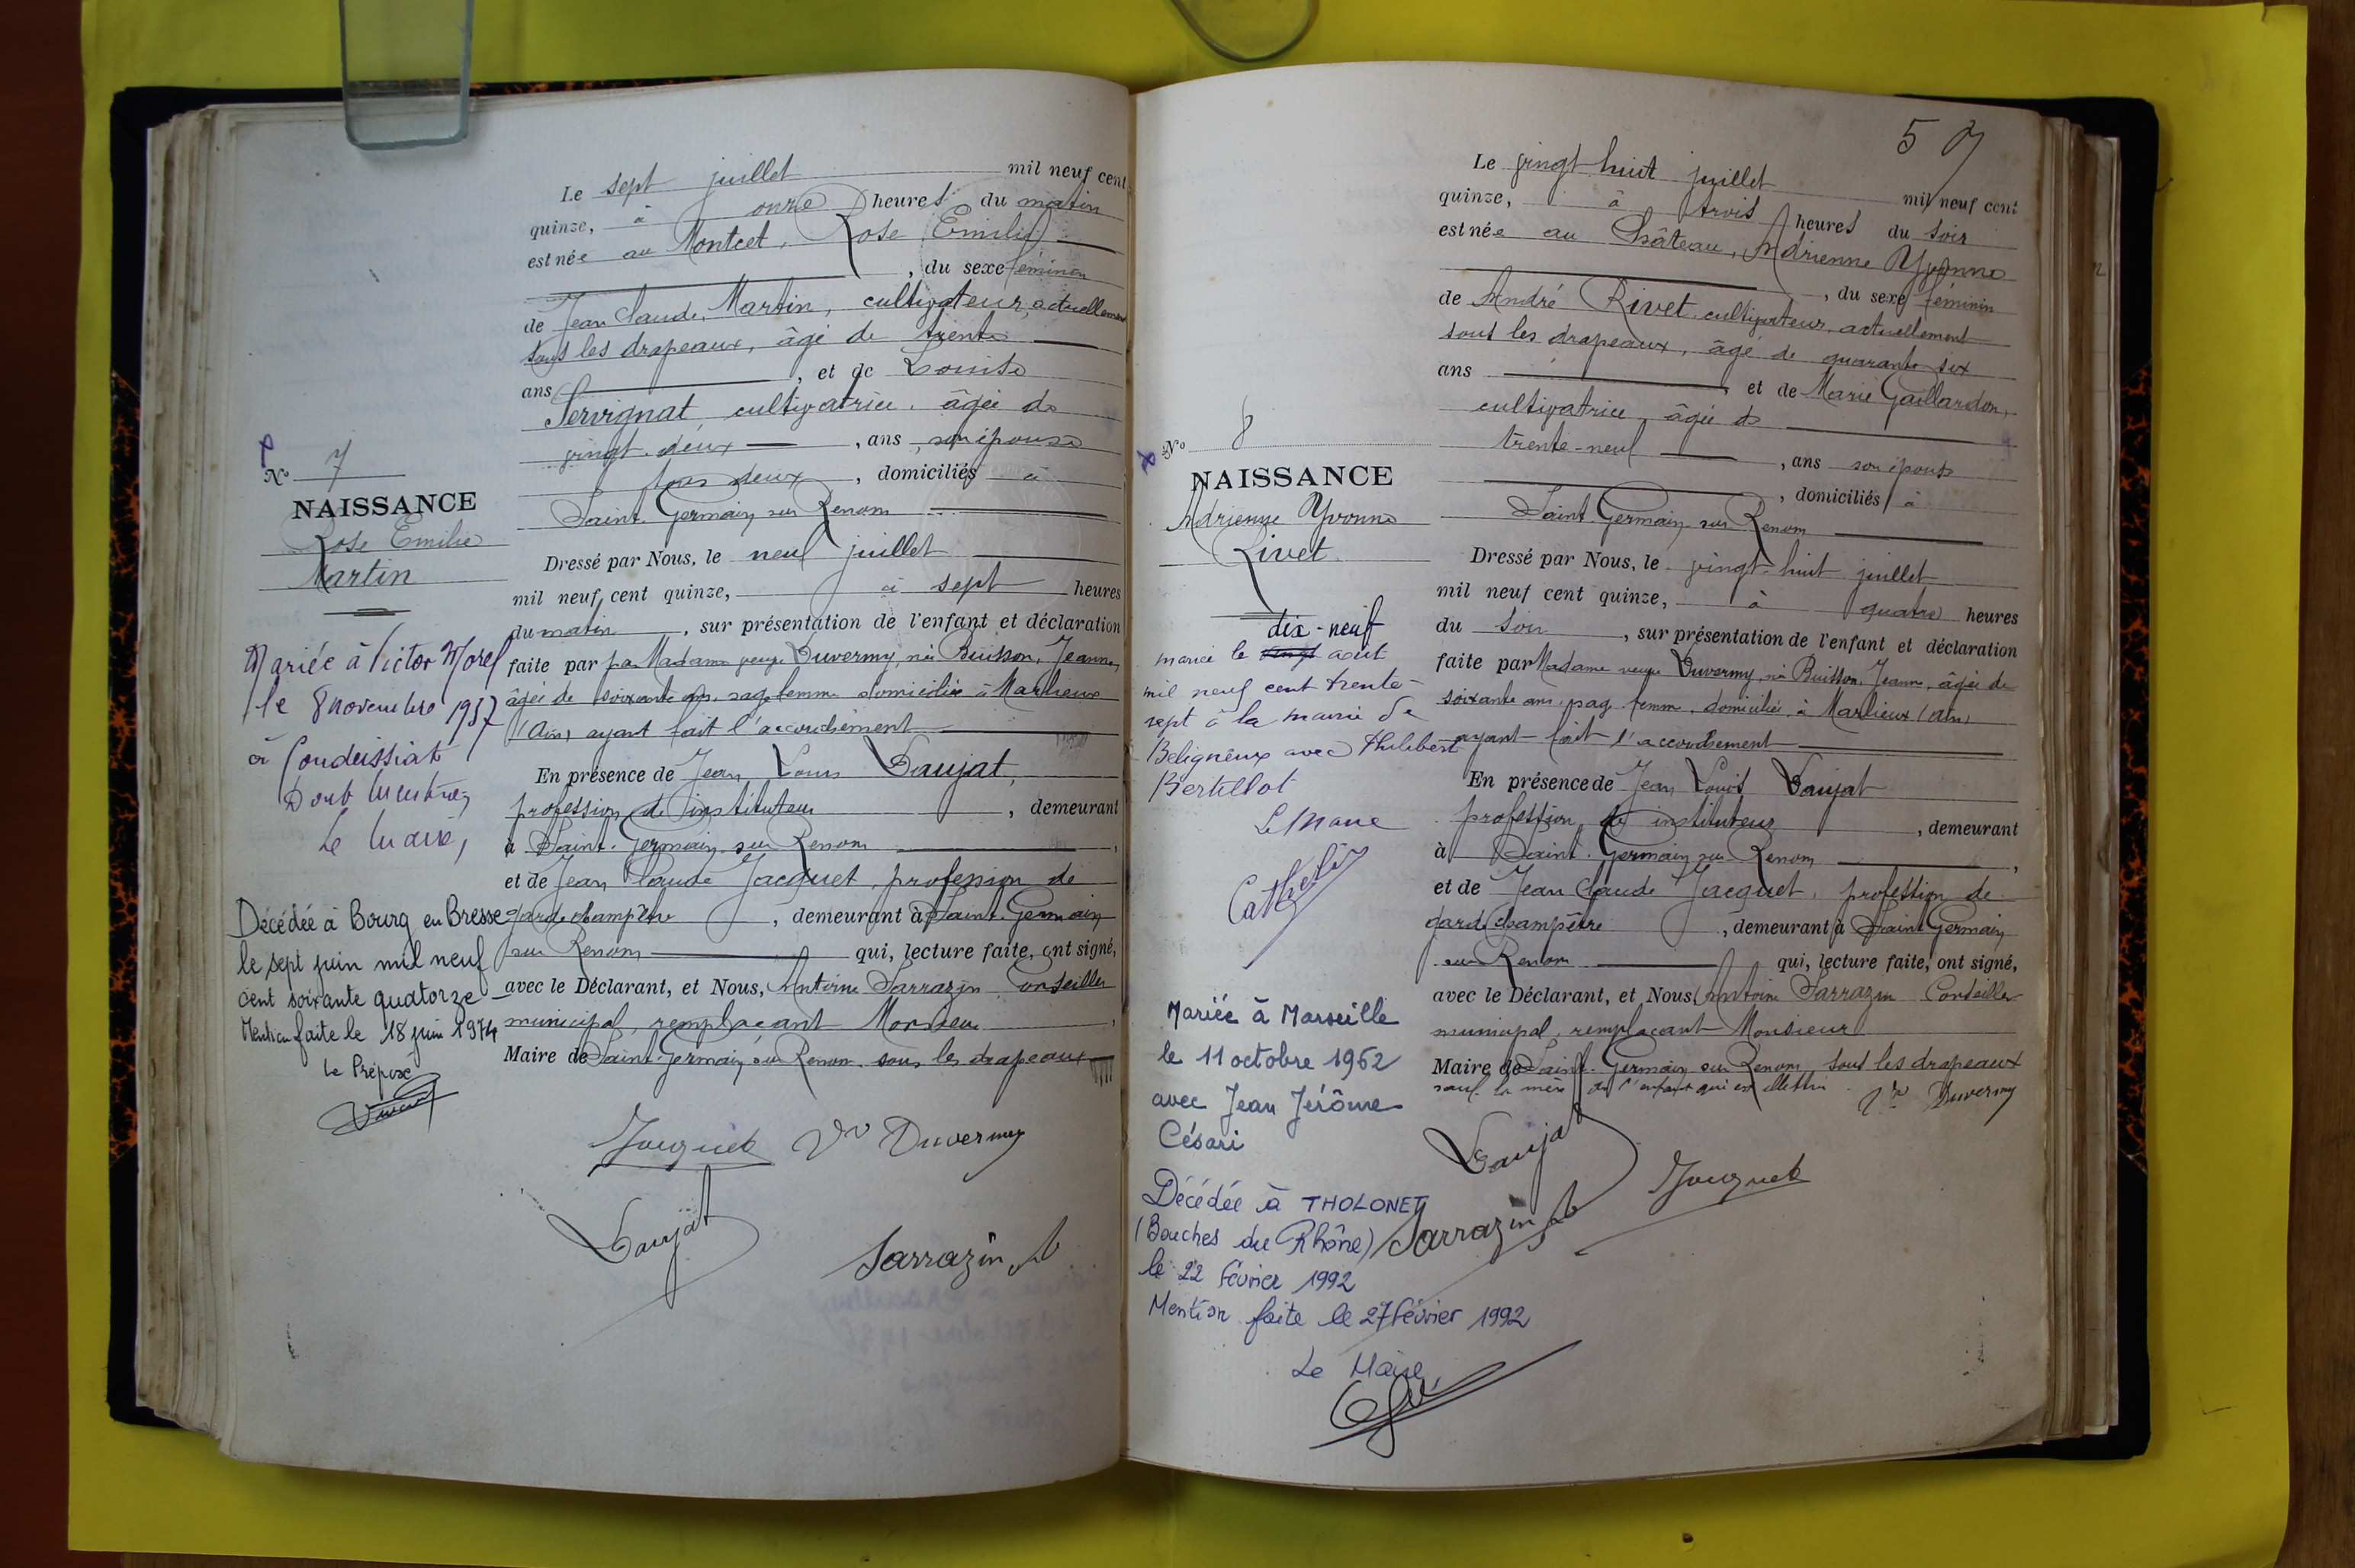 Le sept juillet mil neuf cent
quinze, à onze heures du matin
est née au Montcet, Rose Emilie
, du sexe féminin
de Jean Claude Martin, cultivateur, actuellement
sous les drapeaux, âgé de trente
ans , et de Louise
Servignat cultivatrice, âgée de
vingt-deux , ans son épouse
tous deux , domiciliés à
Saint-Germain sur Renom
N° 7
NAISSANCE
Rose Emilie
Martin
Dressé par Nous, le neuf juillet
mil neuf cent quinze, à sept heures
du matin , sur présentation de l'enfant et déclaration
faite par pa Madame veuve Duvermy, née Buisson, Jeanne,
âgée de soixante ans, sage femme domiciliée à Marlieux
(Ain) ayant fait l'accouchement
En présence de Jean Louis Saujat,
profession de instituteur , demeurant
à Saint-Germain sur Renom ,
et de Jean Claude Jacquet, profession de
garde champêtre , demeurant à Saint-Germain
sur Renom qui, lecture faite, ont signé,
avec le Déclarant, et Nous, Antoine Sarrazin Conseiller
municipal, remplaçant Monsieur ,
Maire de Saint-Germain sur Renom sous les drapeaux
Mariée à Victor Morel
le 8 novembre 1937
à Condeissiat
Dont mention,
Le Maire,
Décédée à Bourg en Bresse
le sept juin mil neuf
cent soixante quatorze
Mention faite le 18 juin 1974
Le Préposé
Jacquet Vve Duvermy
Saujat
Sarrazin
57
Le vingt huit juillet mil neuf cent
quinze, à trois heures du soir
est née au Château, Adrienne Yvonne
, du sexe féminin
de André Rivet, cultivateur, actuellement
sous les drapeaux, âgé de quarante six
ans , et de Marie Gaillardon,
cultivatrice, âgée de
trente-neuf , ans son épouse
, domiciliés à
Saint-Germain sur Renom
N° 8
NAISSANCE
Adrienne Yvonne
Rivet
Dressé par Nous, le vingt-huit juillet
mil neuf cent quinze, à quatre heures
du soir , sur présentation de l'enfant et déclaration
faite par Madame veuve Duvermy, née Buisson, Jeanne, âgée de
soixante ans, sag femme, domiciliée à Marlieux (Ain)
ayant fait l'accouchement
En présence de Jean Louis Saujat
profession de instituteur , demeurant
à Saint-Germain sur Renom ,
et de Jean Claude Jacquet, profession de
garde champêtre , demeurant à Saint Germain
sur Renom qui, lecture faite, ont signé,
avec le Déclarant, et Nous, Antoine Sarrazin Conseiller
municipal, remplaçant Monsieur
Maire de Saint-Germain sur Renom, sous les drapeaux
sauf la mère de l'enfant qui est illettrée
dix-neuf
mariée le vingt août
mil neuf cent trente-
sept à la mairie de
Beligneux avec Philibert
Bertillot
Le Maire
Mariée à Marseille
le 11 octobre 1962
avec Jean Jérôme
Césari
Décédée à THOLONET
(Bouches du Rhône)
le 22 février 1992
Mention faite le 27 février 1992
Le Maire,
Vve Duvermy
Saujat
Jacquet
Sarrazin